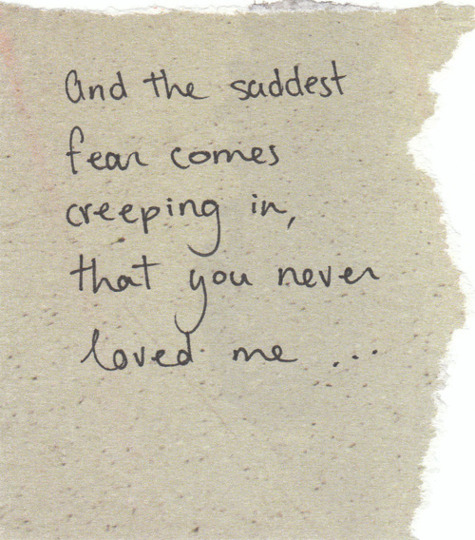 and the saddest
fear comes
creeping in,
that you never
loved me ...